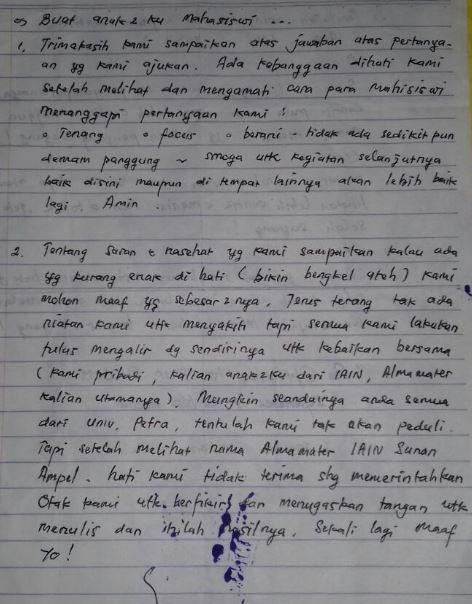 ⇒ Buat anak2 ku Mahasiswi ...
1. Trimakasih kami sampaikan atas jawaban atas pertanya-
an yg kami ajukan. Ada kebanggaan dihati kami
setelah melihat dan mengamati cara para mahisiswi
menanggapi pertanyaan kami :
o Tenang o focus o berani - tidak ada sedikit pun
demam panggung ~ smoga utk kegiatan selanjutnya
baik disini maupun di tempat lainnya akan lebih baik
lagi Amin.
2. Tentang saran & nasehat yg kami sampaikan kalau ada
yg kurang enak di hati (bikin bengkel atoh) kami
mohon maaf yg sebesar2nya. Terus terang tak ada
niatan kami utk menyakiti tapi semua kami lakukan
tulus mengalir dg sendirinya utk kebaikan bersama
(kami pribadi, kalian anak2ku dari IAIN, Almamater
kalian utamanya). Mungkin seandainya anda semua
dari Univ. Petra, tentulah kami tak akan peduli.
Tapi setelah melihat nama Almamater IAIN Sunan
Ampel. hati kami tidak terima shg memerintahkan
Otak kami utk berfikir dan menugaskan tangan utk
menulis dan inilah hasilnya. Sekali lagi maaf
Yo!